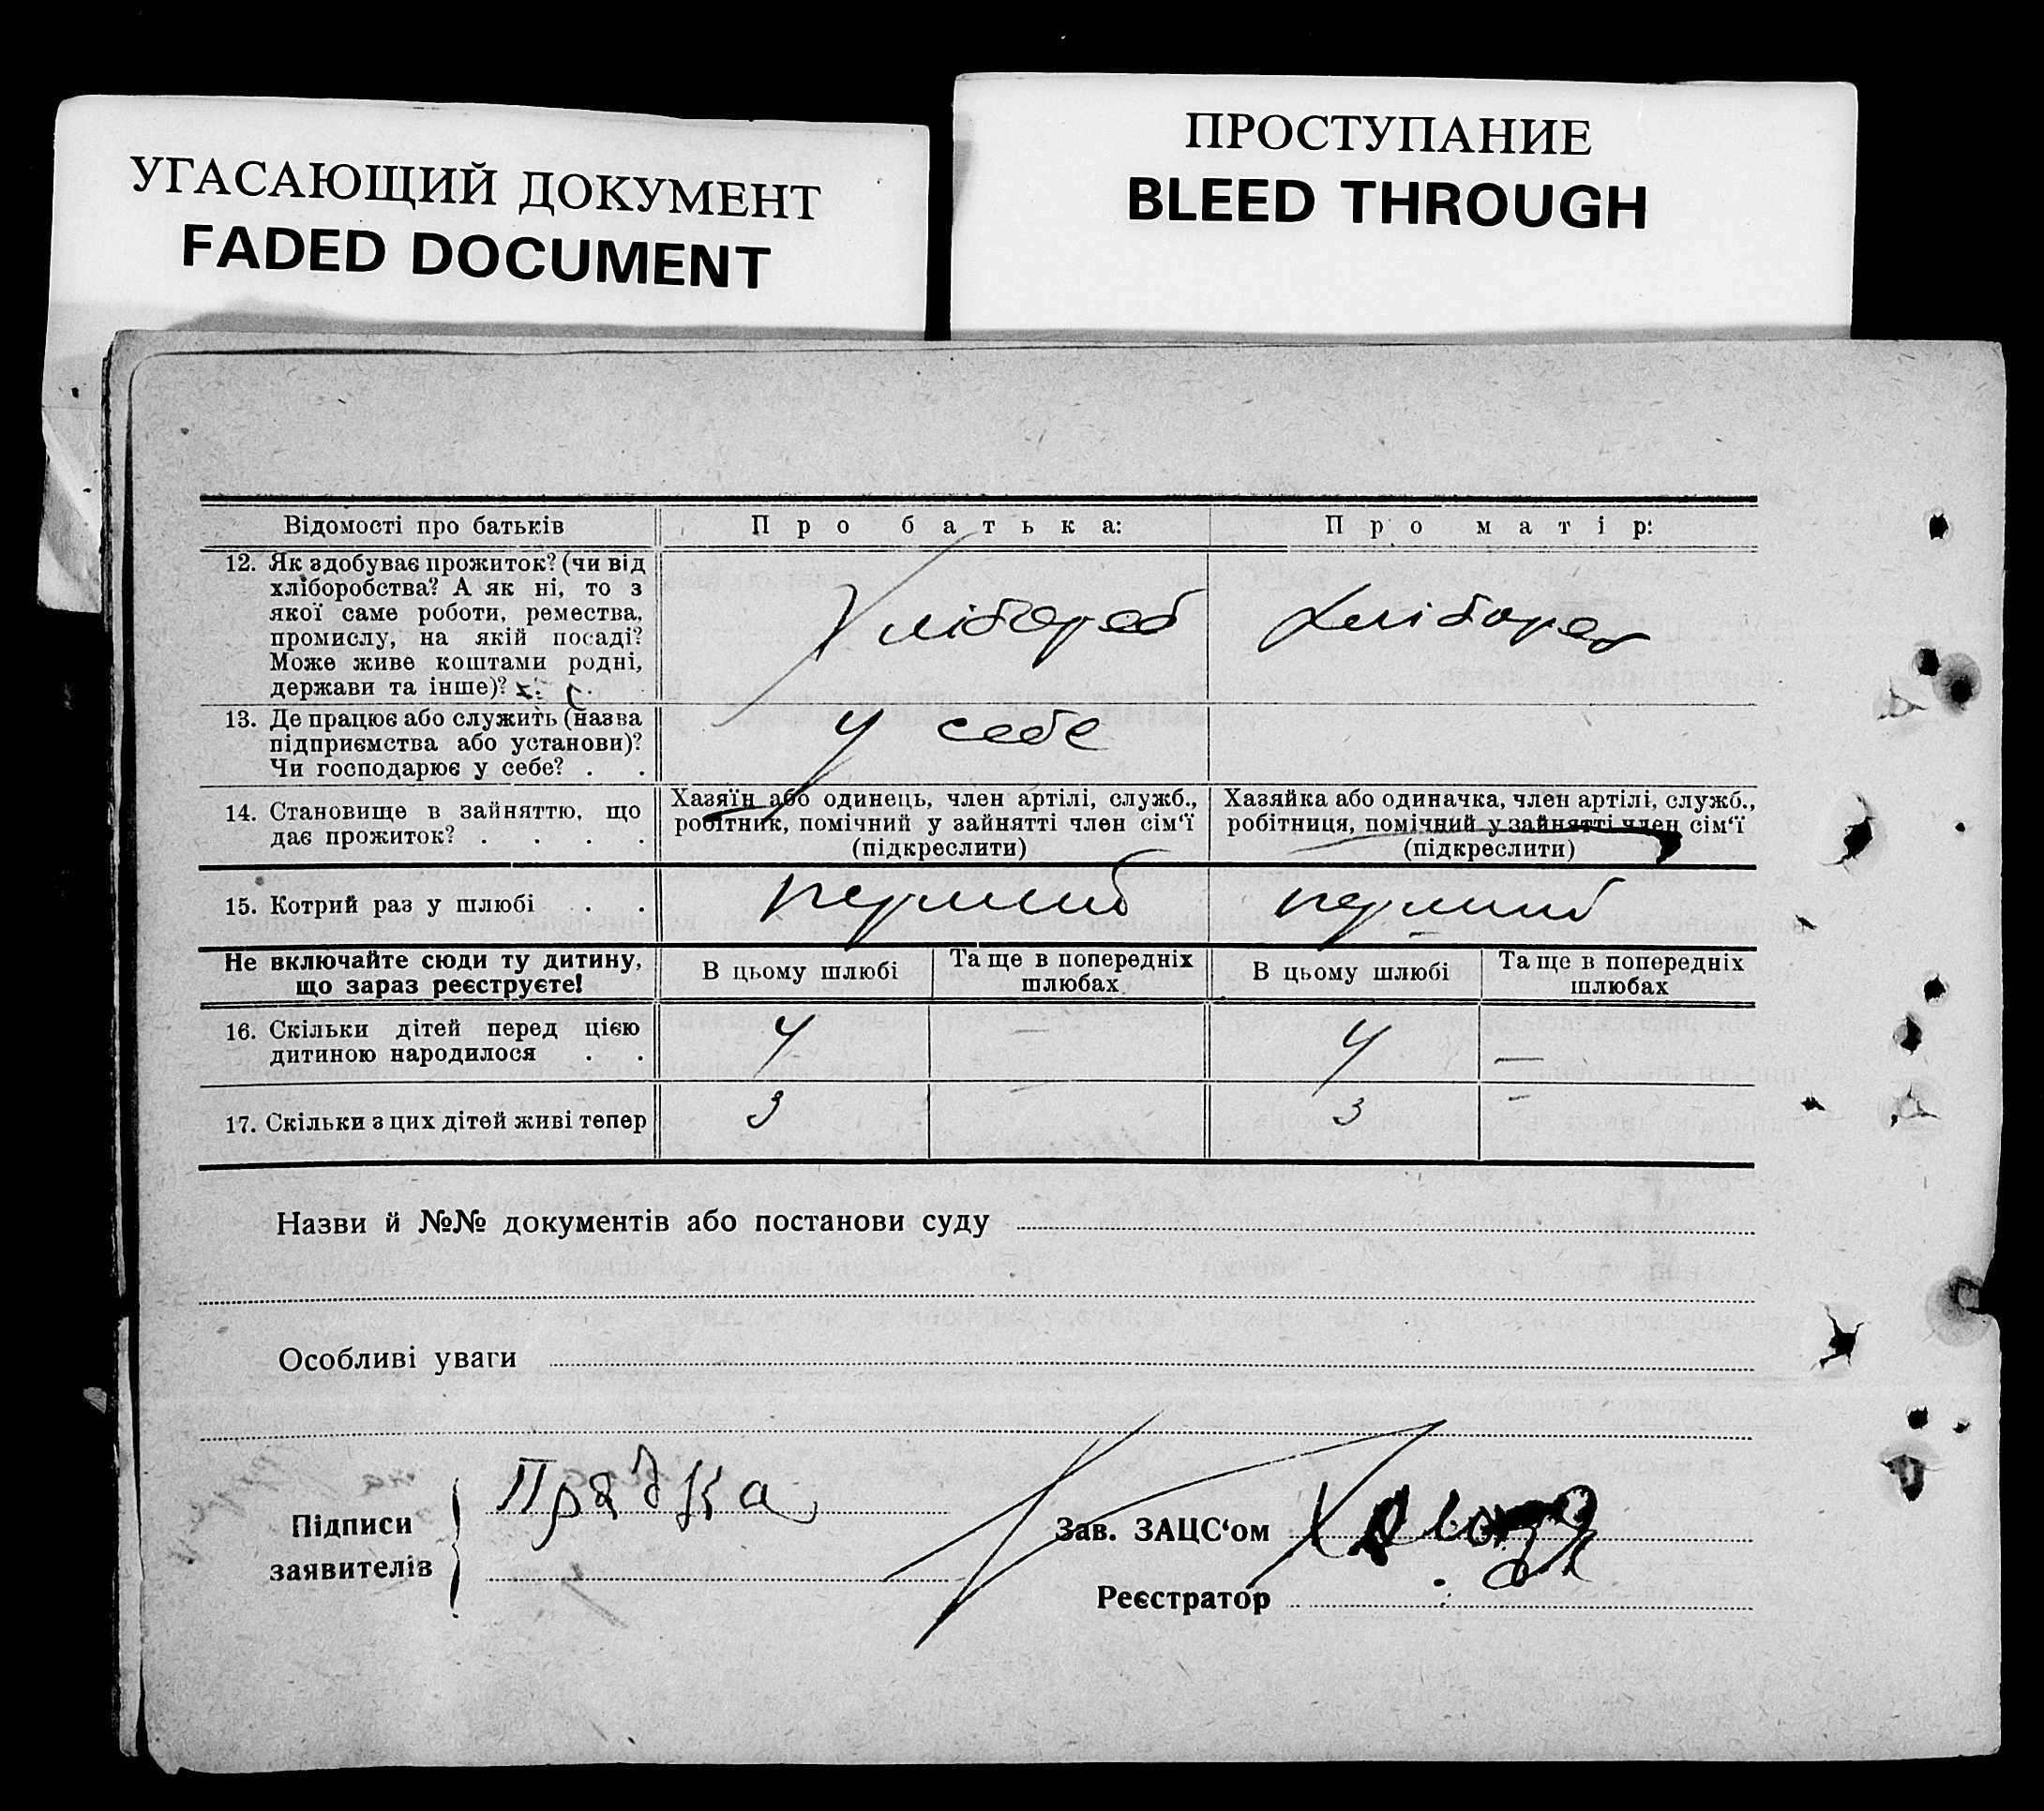 УГАСАЮЩИЙ ДОКУМЕНТ
FADED DOCUMENT
ПРОСТУПАНИЕ
BLEED THROUGH
Відомості про батьків
Про батька:
Про матір:
12. Як здобуває прожиток? (чи від
хліборобства? А як ні, то з
якої саме роботи, ремества,
промислу, на якій посаді?
Може живе коштами родні,
держави та інше)?
Хлібороб
Хлібороб
13. Де працює або служить (назва
підприємства або установи)?
Чи господарює у себе? . .
У себе
14. Становище в зайняттю, що
дає прожиток? . . . .
Хазяїн або одинець, член артілі, служб.,
робітник, помічний у зайнятті член сім‘ї
(підкреслити)
Хазяйка або одиначка, член артілі, служб.,
робітниця, помічний у зайнятті член сім‘ї
(підкреслити)
15. Котрий раз у шлюбі . .
перший
перший
Не включайте сюди ту дитину,
що зараз реєструєте!
В цьому шлюбі
Та ще в попередніх
шлюбах
В цьому шлюбі
Та ще в попередніх
шлюбах
16. Скільки дітей перед цією
дитиною народилося . .
4
—
4
—
17. Скільки з цих дітей живі тепер
3
—
3
—
Назви й №№ документів або постанови суду
Особливі уваги
Підписи
заявителів
Прядка
Зав. ЗАЦС‘ом
Реєстратор